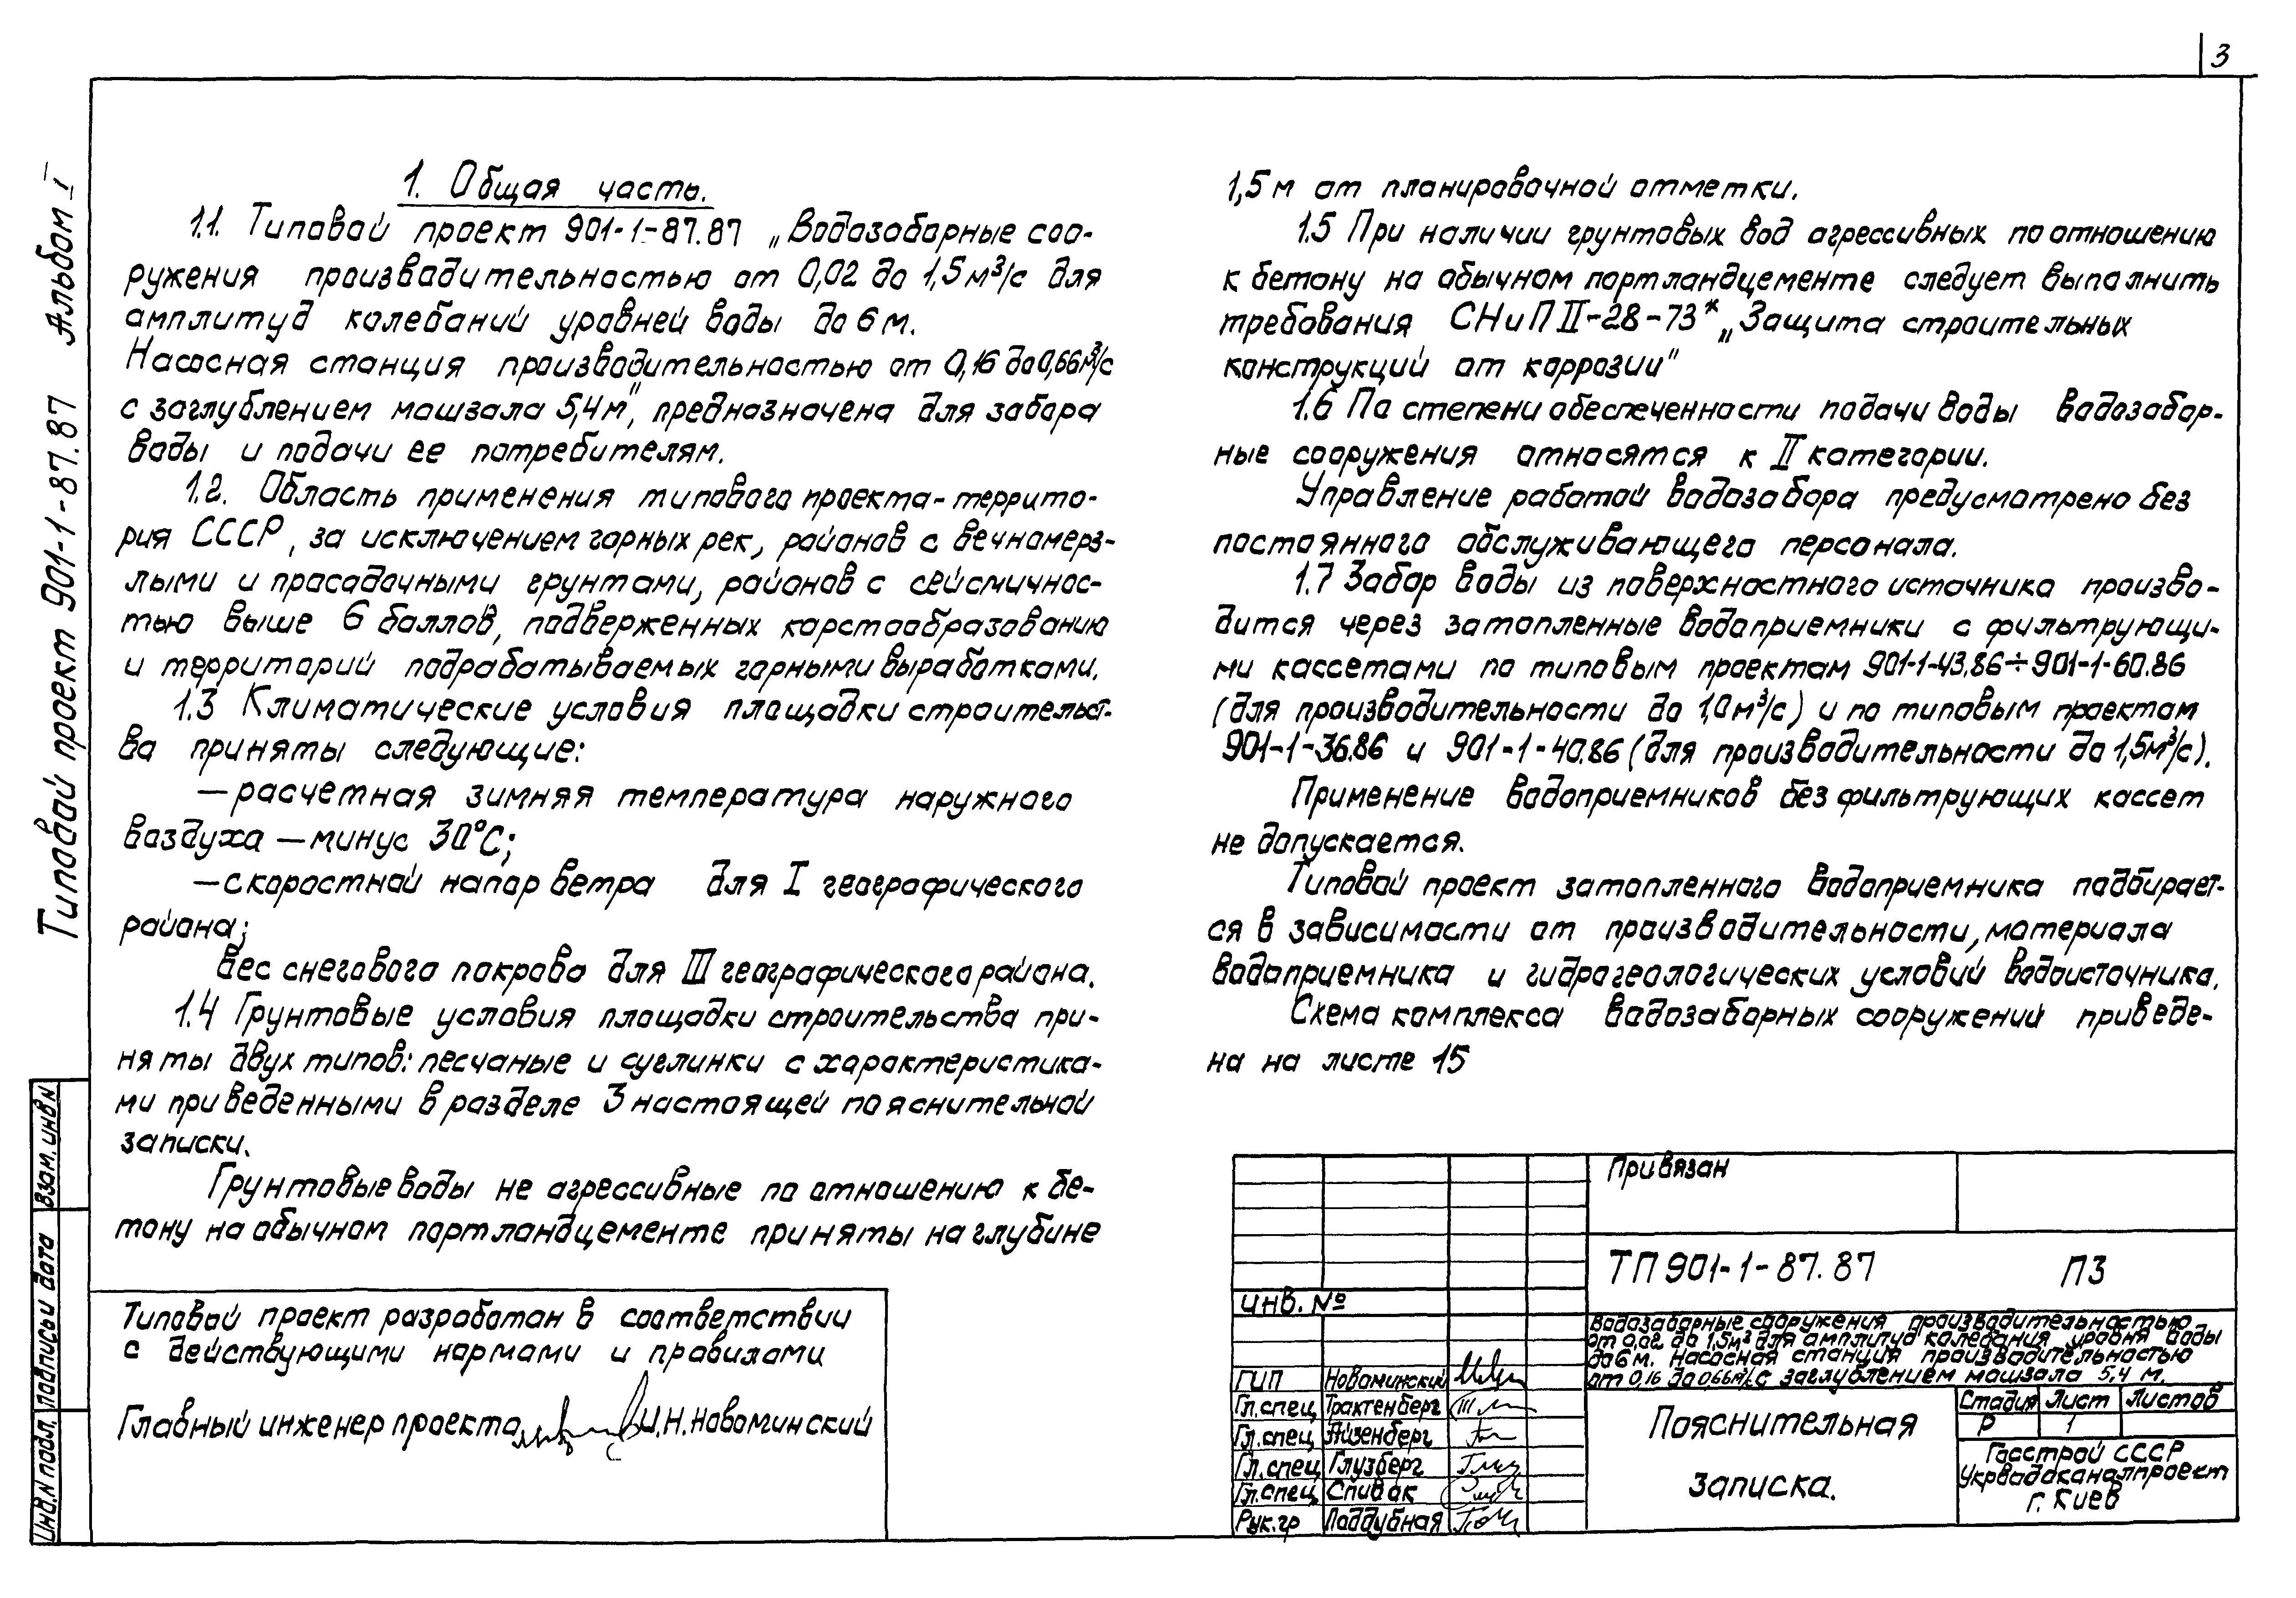 3
Типовой проект 901-1-87.87 Альбом I
1. Общая часть.
1.1. Типовой проект 901-1-87.87 „Водозаборные соо-
ружения производительностью от 0,02 до 1,5 м³/с для
амплитуд колебаний уровней воды до 6 м.
Насосная станция производительностью от 0,16 до 0,66 м³/с
с заглублением машзала 5,4 м", предназначена для забора
воды и подачи ее потребителям.
1.2. Область применения типового проекта - террито-
рия СССР, за исключением горных рек, районов с вечномерз-
лыми и просадочными грунтами, районов с сейсмичнос-
тью выше 6 баллов, подверженных карстообразованию
и территорий подрабатываемых горными выработками.
1.3 Климатические условия площадки строительст-
ва приняты следующие:
— расчетная зимняя температура наружного
воздуха — минус 30°С;
— скоростной напор ветра для I географического
района;
вес снегового покрова для III географического района.
1.4 Грунтовые условия площадки строительства при-
няты двух типов: песчаные и суглинки с характеристика-
ми приведенными в разделе 3 настоящей пояснительной
записки.
Грунтовые воды не агрессивные по отношению к бе-
тону на обычном портландцементе приняты на глубине
1,5 м от планировочной отметки.
1.5 При наличии грунтовых вод агрессивных по отношению
к бетону на обычном портландцементе следует выполнить
требования СНиП II-28-73* „Защита строительных
конструкций от коррозии"
1.6 По степени обеспеченности подачи воды водозабор-
ные сооружения относятся к II категории.
Управление работой водозабора предусмотрено без
постоянного обслуживающего персонала.
1.7 Забор воды из поверхностного источника произво-
дится через затопленные водоприемники с фильтрующи-
ми кассетами по типовым проектам 901-1-43.86÷901-1-60.86
(для производительности до 1,0 м³/с) и по типовым проектам
901-1-36.86 и 901-1-40.86 (для производительности до 1,5 м³/с).
Применение водоприемников без фильтрующих кассет
не допускается.
Типовой проект затопленного водоприемника подбирает-
ся в зависимости от производительности, материала
водоприемника и гидрогеологических условий водоисточника.
Схема комплекса водозаборных сооружений приведе-
на на листе 15
Типовой проект разработан в соответствии
с действующими нормами и правилами
Главный инженер проекта И.Н. Новоминский
Инв.N подл. Подпись и дата Взам. инв N
Привязан
Инв. №
ТП 901-1-87.87 ПЗ
Водозаборные сооружения производительностью
от 0,02 до 1,5 м³ для амплитуд колебания уровня воды
до 6 м. Насосная станция производительностью
от 0,16 до 0,66 м³/с с заглублением машзала 5,4 м.
ГИП Новоминский
Гл. спец Трактенберг
Гл. спец Айзенберг
Гл. спец Глузберг
Гл. спец Спивак
Рук. гр Поддубная
Пояснительная
записка.
Стадия Лист Листов
Р 1
Госстрой СССР
Укрводоканалпроект
г. Киев